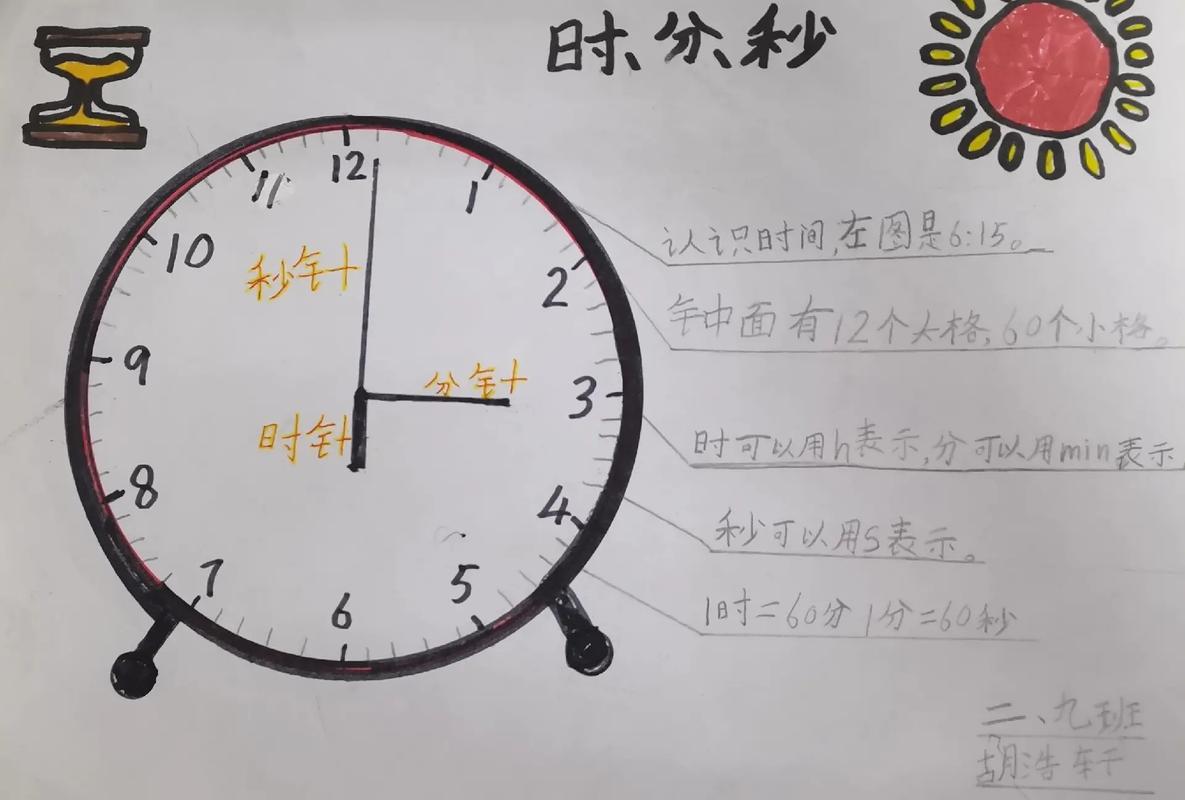 时、分、秒
12
1
2
3
4
5
6
7
8
9
10
11
秒针
分针
时针
认识时间,左图是6:15。
钟面有12个大格,60个小格。
时可以用h表示,分可以用min表示
秒可以用s表示。
1时=60分 1分=60秒
二、九班
胡浩轩